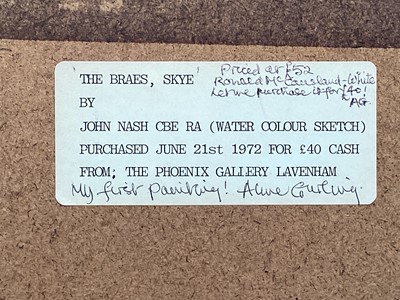 'THE BRAES, SKYE' Priced at £52
Ronald McCausland-White
let me purchase it for £40!
AG.
BY
JOHN NASH CBE RA (WATER COLOUR SKETCH)
PURCHASED JUNE 21st 1972 FOR £40 CASH
FROM; THE PHOENIX GALLERY LAVENHAM
My first Painting! Anne Gurling.